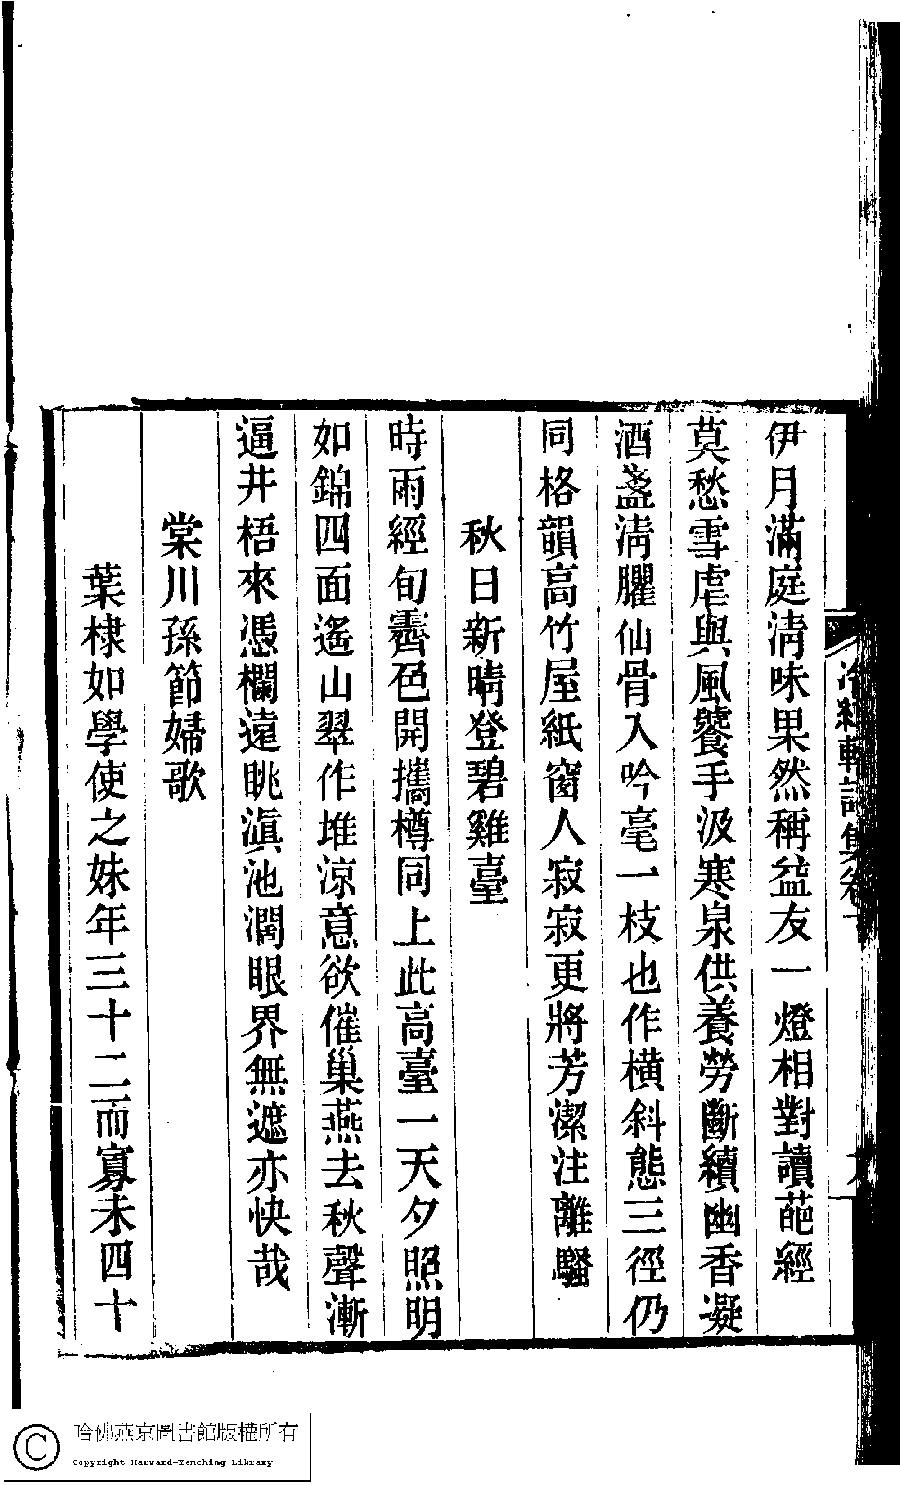 伊月滿庭淸味果然稱益友一燈相對讀葩經
莫愁雪虐與風饕手汲寒泉供養勞斷續幽香凝
酒盞淸臞仙骨入吟毫一枝也作橫斜態三徑仍
同格韻高竹屋紙窗人寂寂更將芳潔注離騷
秋日新晴登碧雞臺
時雨經旬霽色開攜樽同上此高臺一天夕照明
如錦四面遙山翠作堆涼意欲催巢燕去秋聲漸
逼井梧來憑欄遠眺滇池濶眼界無遮亦快哉
棠川孫節婦歌
葉棣如學使之妹年三十二而寡未四十
軒詩集卷
哈佛燕京圖書館版權所有
Copyright Harvard-Yenching Library